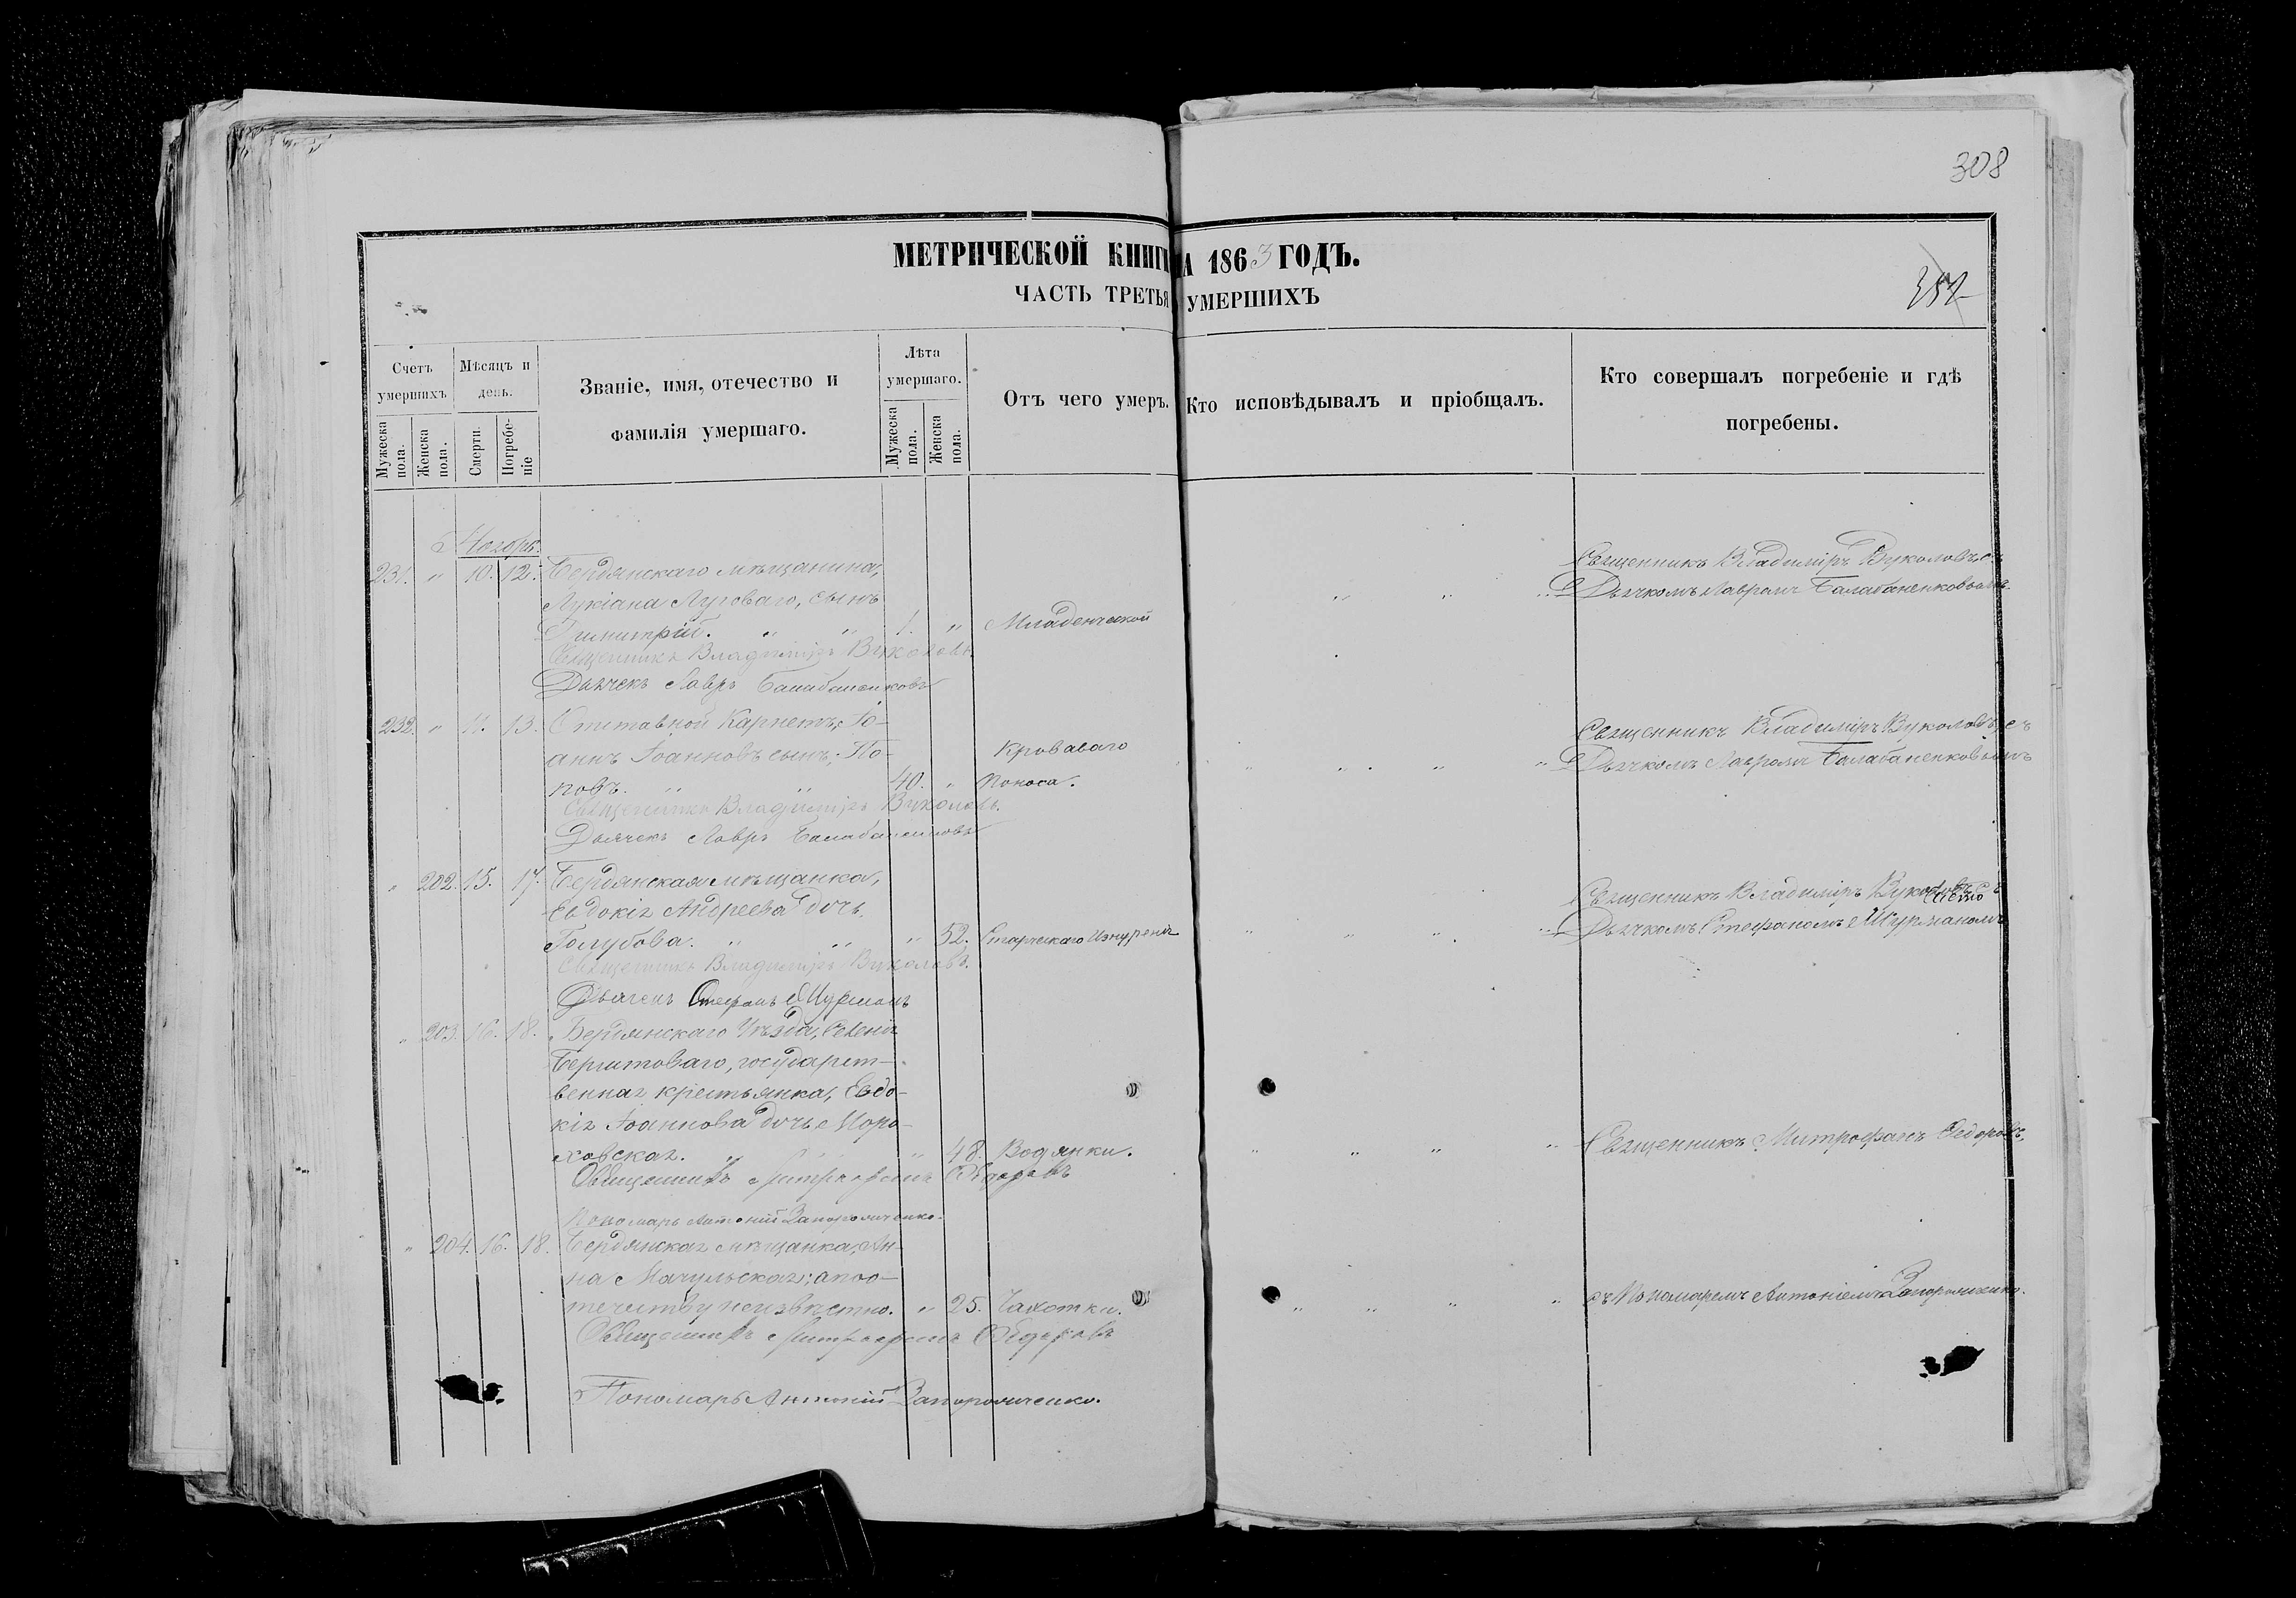 308
МЕТРИЧЕСКОЙ КНИГИ А 1863 ГОДЪ.
ЧАСТЬ ТРЕТЬЯ УМЕРШИХЪ
Счетъ умершихъ
Мѣсяцъ и день.
Званіе, имя, отечество и фамилія умершаго.
Лѣта умершаго.
Отъ чего умеръ.
Кто исповѣдывалъ и пріобщалъ.
Кто совершалъ погребеніе и гдѣ погребены.
Мужеска пола.
Женска пола.
Смерти.
Погребеніе
Мужеска пола.
Женска пола.
Ноябрь.
231. " 10. 12. Бердянскаго мѣщанина,
Лукіана Луговаго, сынъ
Димитрій. " " 1. " Младенческой
Священникъ Владиміръ Вуколовъ, съ
Дьячкомъ Лавромъ Балабаненковымъ.
Священникъ Владиміръ Вуколовъ.
Дьячекъ Лавръ Балабаненковъ
232. " 11. 13. Отставной Карнетъ, Іо-
аннъ Іоанновъ сынъ, По-
повъ. " " 40. " Кроваваго поноса.
Священникъ Владиміръ Вуколовъ, съ
Дьячкомъ Лавромъ Балабаненковымъ
Священникъ Владиміръ Вуколовъ.
Дьячекъ Лавръ Балабаненковъ
" 202. 15. 17. Бердянская мѣщанка,
Евдокія Андреева дочь
Голубова. " " " 52. Старческаго Изнуренія
Священникъ Владиміръ Вуколовъ съ
Дьячкомъ Стефаномъ Шурманомъ
Священникъ Владиміръ Вуколовъ.
Дьячекъ Стефанъ Шурманъ
" 203. 16. 18. Бердянскаго Уѣзда, Селенія
государст-
венная крестьянка, Евдо-
кія Іоаннова дочь Моро-
ховская. " " " 48. Водянки.
Священникъ Митрофанъ Федоровъ.
Священникъ Митрофанъ Федоровъ
Пономарь Антоній Запорожченко.
" 204. 16. 18. Бердянская мѣщанка, Ан-
на Мачульская; а по о-
течеству неизвѣстно. " 25. Чахотки.
съ Пономаремъ Антоніемъ Запорожченко.
Священникъ Митрофанъ Федоровъ
Пономарь Антоній Запорожченко.